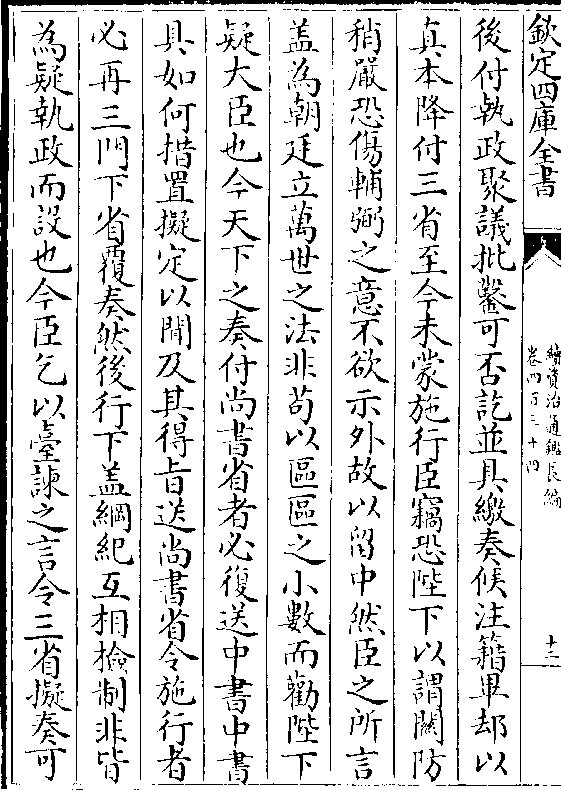 欽定四庫全書
續資治通鑑長編
卷四百三十四
十二
後付執政聚議批鑿可否訖並具繳奏候注籍畢却以
真本降付三省至今未蒙施行臣竊恐陛下以謂關防
稍嚴恐傷輔弼之意不欲示外故以留中然臣之所言
盖為朝廷立萬世之法非苟以區區之小數而勸陛下
疑大臣也今天下之奏付尚書省者必復送中書中書
具如何措置擬定以聞及其得旨送尚書省令施行者
必再三門下省覆奏然後行下盖綱紀互相檢制非皆
為疑執政而設也今臣乞以臺諫之言令三省擬奏可